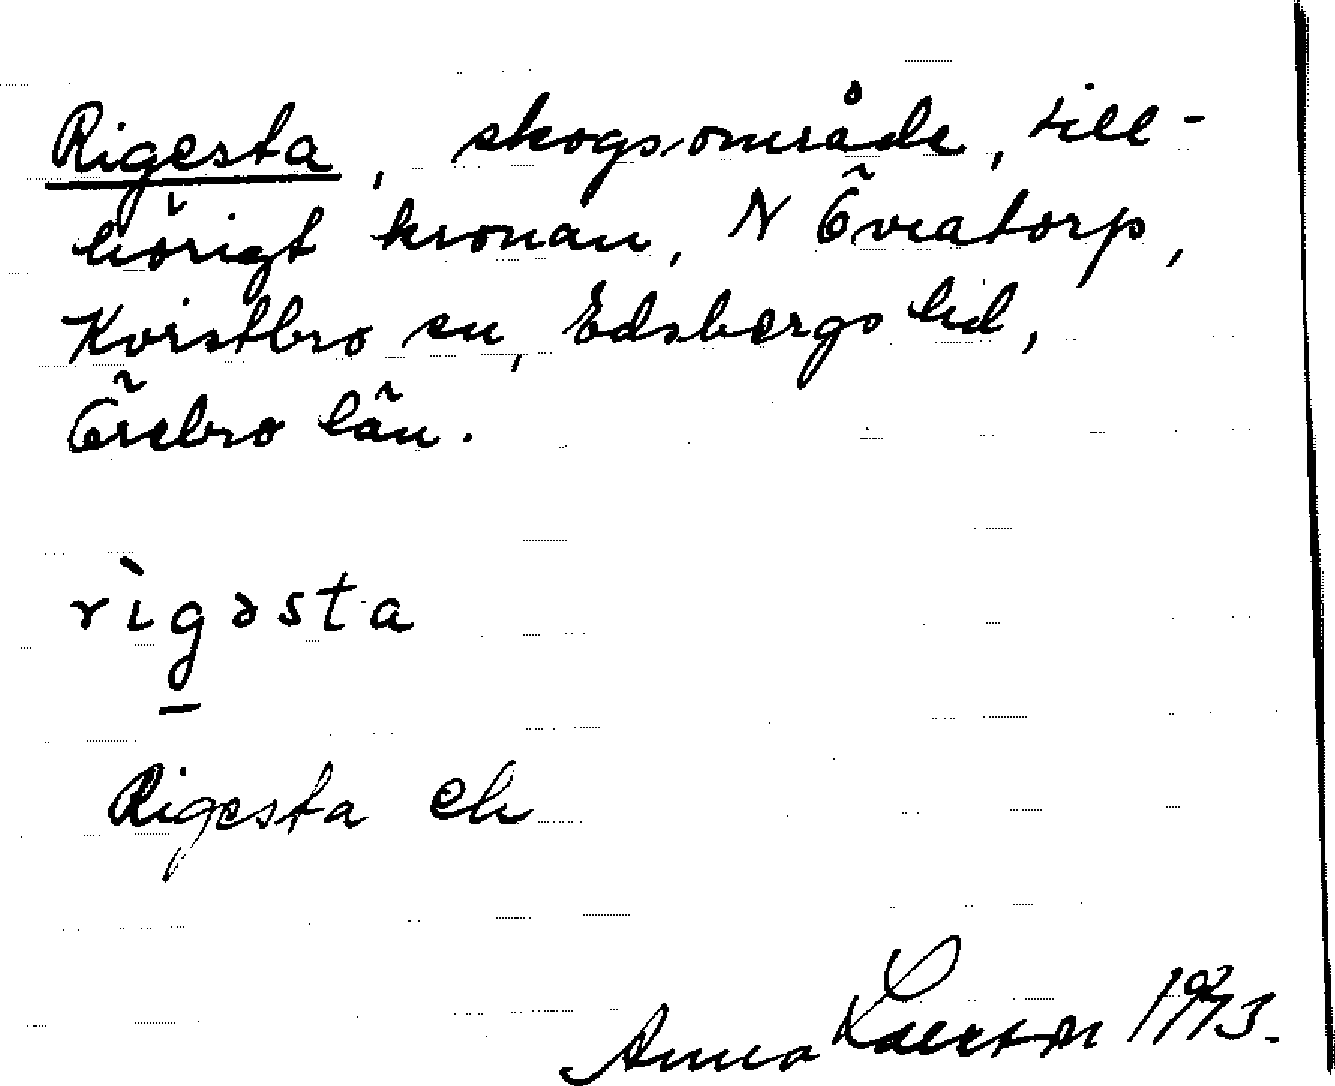 Rigesta, skogsområde, till-
hörigt kronan, N Öviatorp,
Kvistbro sn, Edsbergs hd,
Örebro län.
rìgəsta
Rigesta ek
Anna 1973.